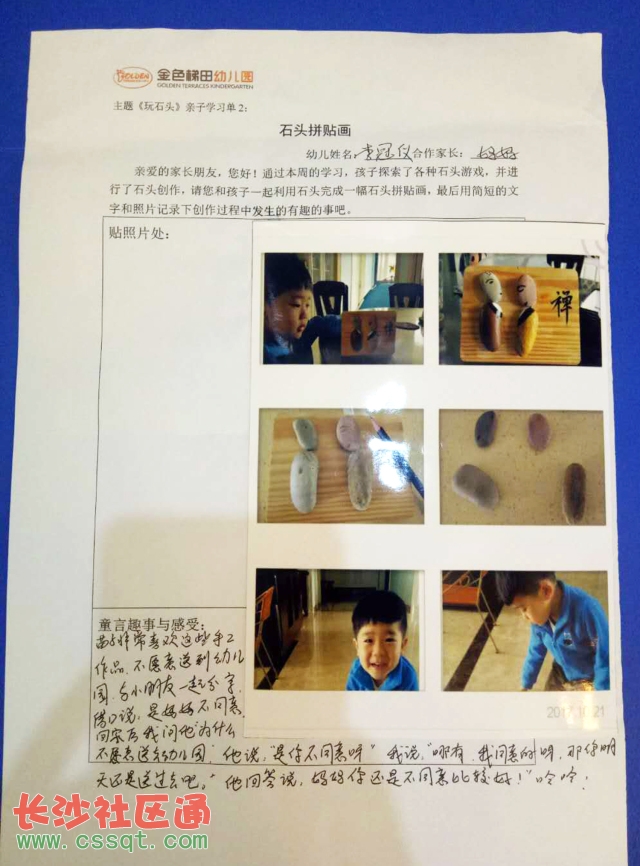 GOLDEN
金色梯田幼儿园
GOLDEN TERRACES KINDERGARTEN
主题《玩石头》亲子学习单 2：
石头拼贴画
幼儿姓名：李冠仪 合作家长：妈妈
亲爱的家长朋友，您好！通过本周的学习，孩子探索了各种石头游戏，并进
行了石头创作，请您和孩子一起利用石头完成一幅石头拼贴画，最后用简短的文
字和照片记录下创作过程中发生的有趣的事吧。
贴照片处：
禅
2017.10.21
童言趣事与感受：
非常喜欢这些手工
作品，不愿意送到幼儿
园，与小朋友一起分享，
借口说，是妈妈不同意，
回家后我问他"为什么
不愿意送去幼儿园，他说，"是你不同意呀" 我说，"哪有，我同意的呀，那你明
天还是送过去吧。" 他回答说，妈妈你还是不同意比较好！" 哈哈！
长沙社区通
www.cssqt.com